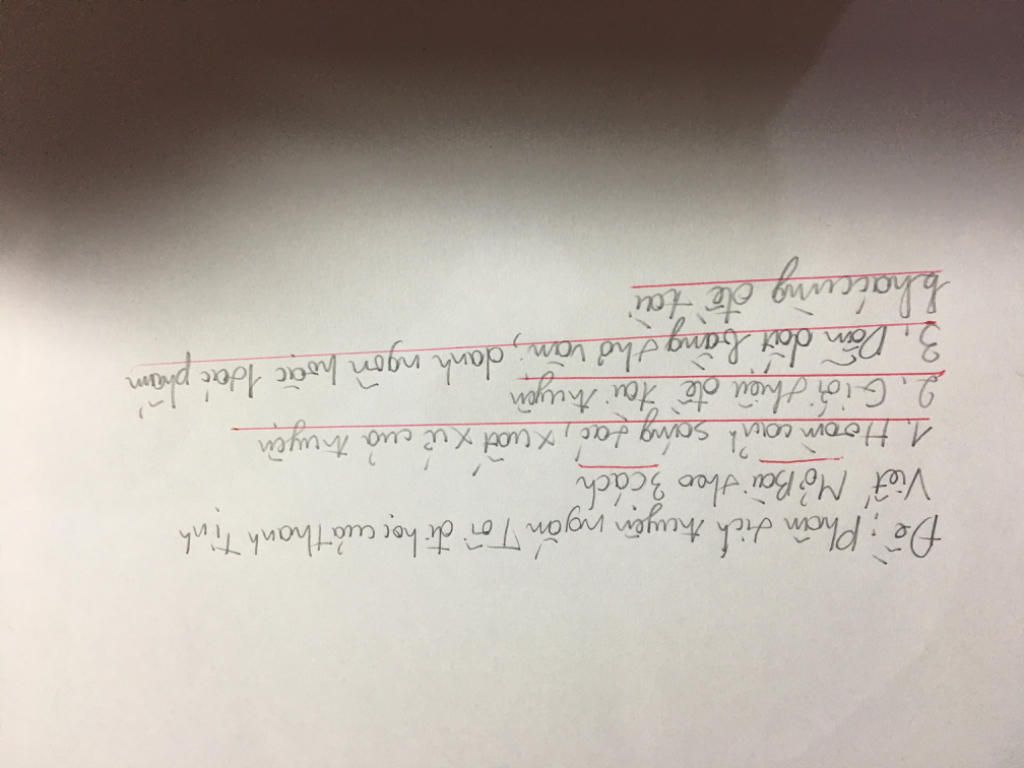 Đề: Phân tích truyện ngắn Tôi đi học của Thanh Tịnh
Viết Mở Bài theo 3 cách
1. Hoàn cảnh sáng tác, xuất xứ của truyện
2. Giới thiệu đề tài truyện
3. Dẫn dắt bằng thơ văn, danh ngôn hoặc 1 tác phẩm
khác cùng đề tài